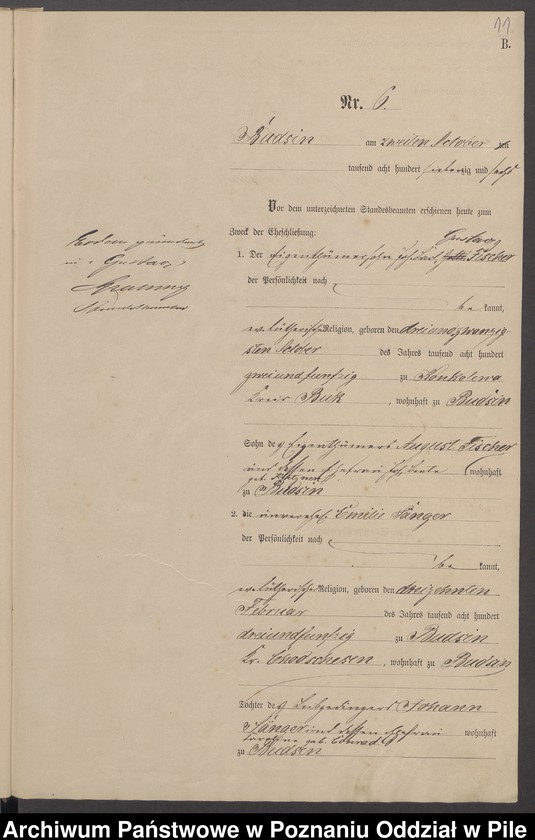 11
B.
Nr. 6.
Budsin am zweiten October ten
tausend acht hundert siebenzig und sechs
Vor dem unterzeichneten Standesbeamten erschienen heute zum
Zweck der Eheschließung:
Gustav
1. Der Eigenthümersohn Fischer
der Persönlichkeit nach
be kannt,
ev. lutherischer Religion, geboren den dreiundzwanzig
sten October des Jahres tausend acht hundert
zweiundfunfzig zu Konkolewo
Kreis Buk, wohnhaft zu Budsin
Sohn des Eigenthümers August Fischer
und dessen Ehefrau Beate wohnhaft
geb.
zu Budsin
2. die unverehel. Emilie Sänger
der Persönlichkeit nach
be kannt,
ev. lutherischer Religion, geboren den dreizehnten
Februar des Jahres tausend acht hundert
dreiundfunfzig zu Budsin
Kr. Chodschesen, wohnhaft zu Budsin
Tochter des Leibgedingers Johann
Sänger und dessen Ehefrau wohnhaft
Caroline geb. Conrad
zu Budsin
in: Gustav
Archiwum Państwowe w Poznaniu Oddział w Pile